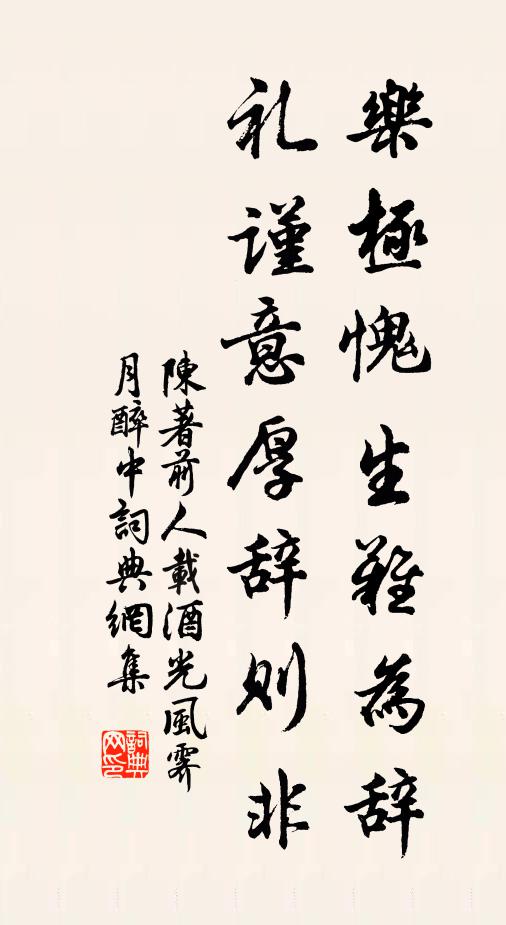 樂極愧生難為辞
礼謹意厚辞則非
陳著前人載酒光風霽
月醉中詞典網集
詞典
网印